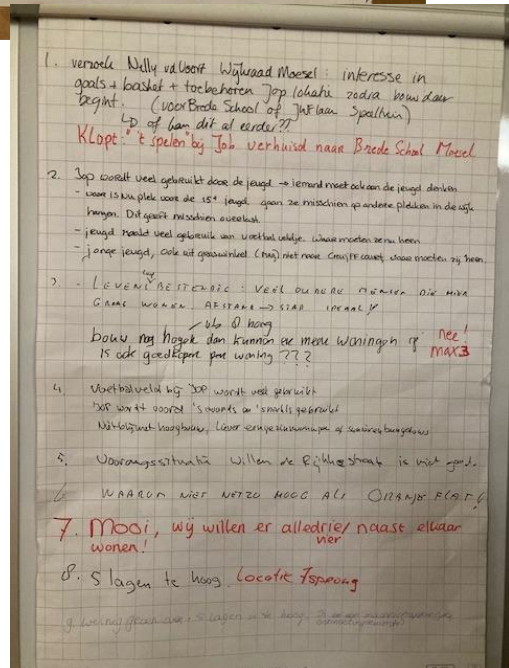 1. verzoek Nelly vd Voort Wijkraad Moesel: interesse in
goals + basket + toebehoren Jop lokatie zodra bouw daar
begint. (voor Brede School of
↳ of kan dit al eerder??
Klopt: "t spelen" bij Job verhuisd naar Brede School Moesel
2. Jop wordt veel gebruikt door de jeugd → iemand moet ook aan de jeugd denken
- waar is nu plek voor de 15+ jeugd, gaan ze misschien op andere plekken in de wijk
hangen. Dit geeft misschien overlast.
- jeugd maakt veel gebruik van voetbal veldje. waar moeten ze nu heen
- jonge jeugd, ook uit graswinkel niet naar Cruijff court, waar moeten zij heen
3. LEVENSBESTENDIG: VEEL OUDERE MENSEN DIE HIER
GRAAG WONEN. AFSTAND → STAD IDEAAL!!
hoog
bouw nog hoger dan kunnen er meer woningen op nee!
is ook goedkoper per woning ??? max 3
4. Voetbalveld bij JOP wordt veel gebruikt
JOP wordt vooral 's avonds en gebruikt
Niet hoogbouw, liever eengezinswoningen of seniorenbungalows
5. Voorrangssituatie Willem de Rijkestraat is niet goed.
6 WAAROM NIET NET ZO HOOG ALS ORANJE FLAT?
7. Mooi, wij willen er alledrie/ naast elkaar
vier
wonen!
8. 5 lagen te hoog. Locatie 7sprong
9 weinig groen 5 lagen is te hoog.